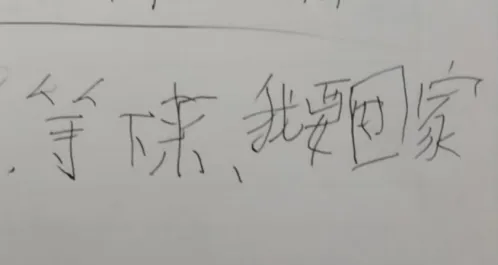 .等下来、我要回家